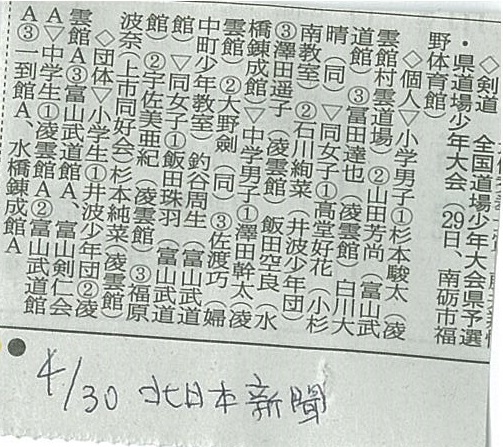 ◇剣道 全国道場少年大会県予選
・県道場少年大会(29日、南砺市福
野体育館)
◇個人▽小学男子①杉本駿太(凌
雲館村雲道場)②山田芳尚(富山武
道館)③冨田達也(凌雲館)白川大
晴(同)▽同女子①高堂好花(小杉
南教室)②石川絢菜(井波少年団)
③澤田遥子(凌雲館)飯田空良(水
橋錬成館)▽中学男子①澤田幹太(凌
雲館)②大野劍(同)③佐渡巧(婦
中町少年教室)釣谷周生(富山武道
館)▽同女子①飯田珠羽(富山武道
館)②宇佐美亜紀(凌雲館)③福原
波奈(上市同好会)杉本純菜(凌雲館)
◇団体▽小学生①井波少年団②凌
雲館A③富山武道館A、富山剣仁会
A▽中学生①凌雲館A②富山武道館
A③一到館A、水橋錬成館A
4/30 北日本新聞